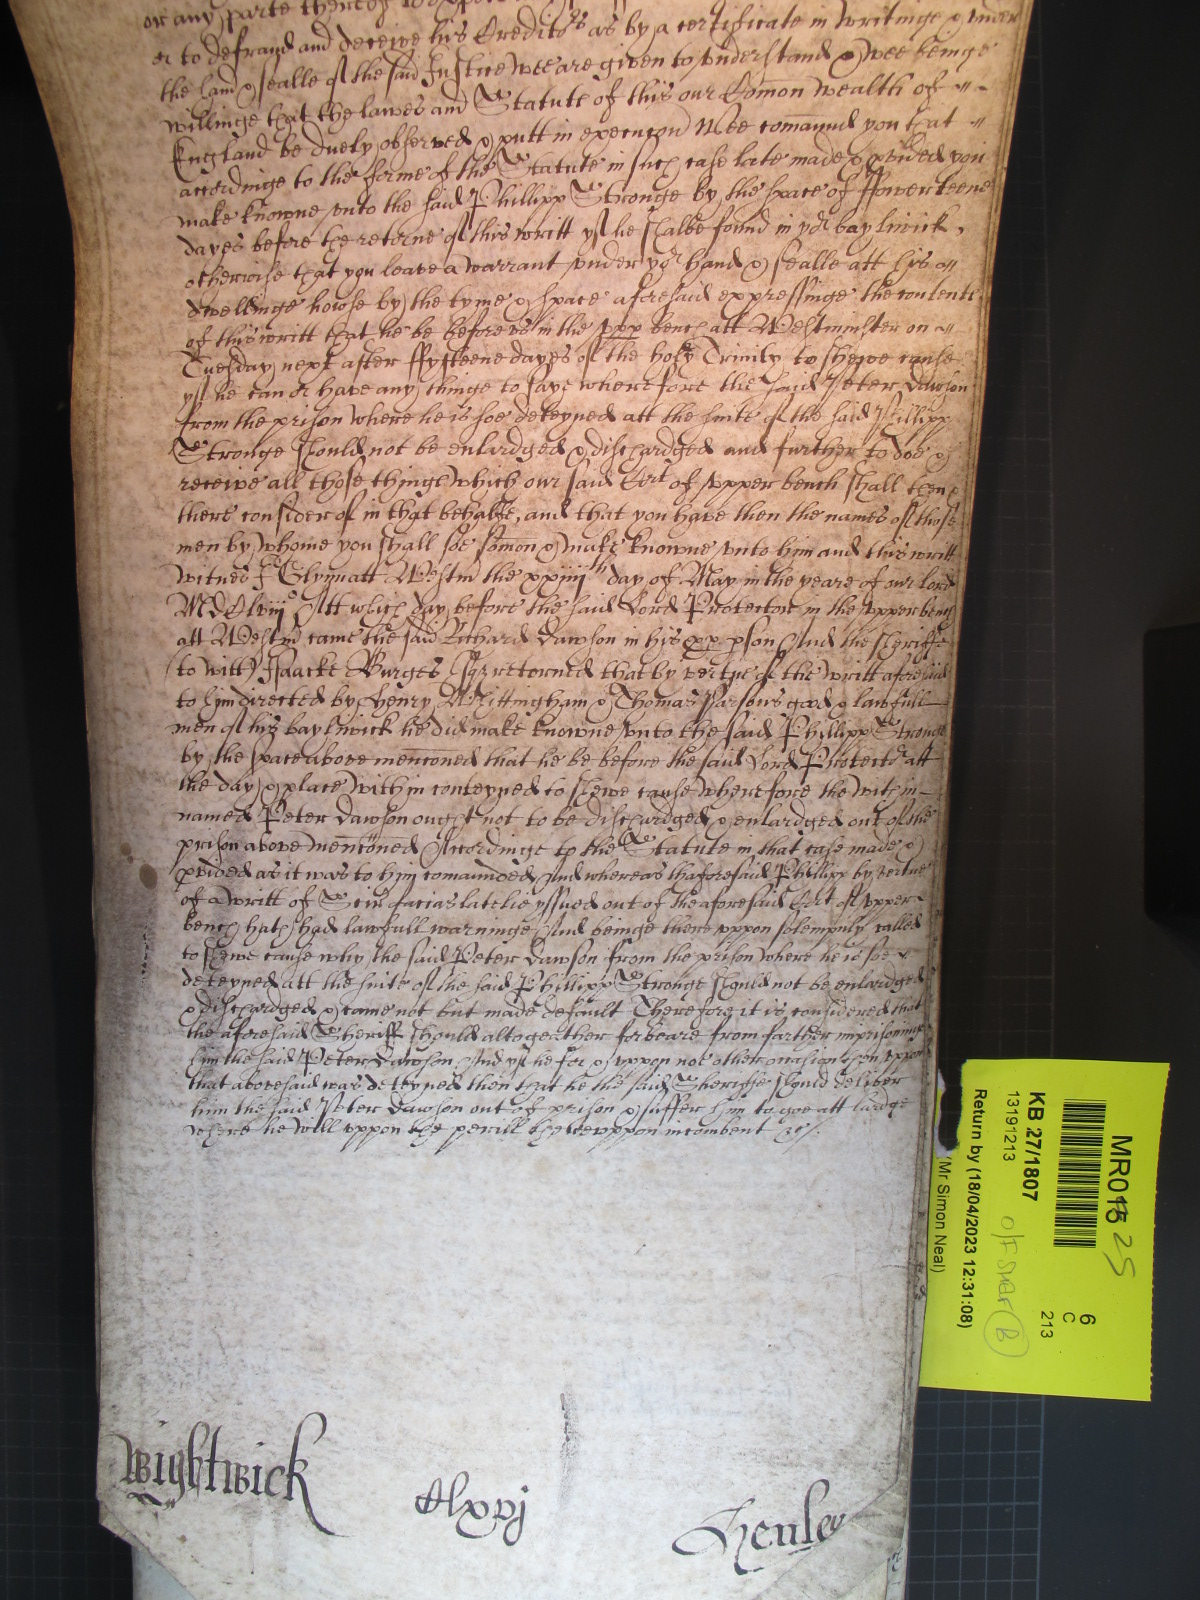 or any parte thereof
or to defraud and deceive his Creditors as by a certificate in writinge & under
the hand & sealle of the said Justice wee are given to understand & wee beinge
willinge that the lawes and Statute of this our Comon wealth of
England be duely observed & putt in execucon Wee comaund you that
accordinge to the forme of the Statute in such case late made & pvided you
make knowne unto the said Phillipp Stronge by the space of ffowerteene
dayes before the returne of this writt yf he shalbe found in yor baylwick,
otherwise that you leave a warrant under yor hand & sealle att his
dwellinge howse by the tyme & space aforesaid expressinge the contents
of this writt that he be before us in the upp bench att Westminster on
Tuesday next after ffyfteene dayes of the holy Trinity to shewe cause
yf he can or have any thinge to saye wherefore the said Peter Dawson
from the prison where he is soe deteyned att the suite of the said Phillipp
Stronge should not be enlardged & dischardged and further to doe &
receive all those thinge which our said Cort of upper bench shall then &
there consider of in that behalfe, and that you have then the names of those
men by whome you shall soe somon & make knowne unto him and this writt
Witnes J Glynn att Westm the xxiiiith day of May in the yeare of our lord
MDClviiio Att which day before the said Lord Protector in the upper bench
att Westm came the said Richard Dawson in his pp pson And the Sheriffe
(to witt) Isaacke Burges Esqr returned that by vertue of the writt aforesaid
to him directed by Henry Whittingham & Thomas Parsons good & lawfull
men of his baylwick he did make knowne unto the said Phillipp Stronge
by the space above mencioned that he be before the said Lord Protector att
the day & place within conteyned to shewe cause wherefore the within
named Peter Dawson ought not to be dischardged & enlardged out of the
prison above mencioned Accordinge to the Statute in that case made &
pvided as it was to him comaunded, And whereas thaforesaid Phillipp by vertue
of a writt of Scire facias latelie yssued out of the aforesaid Cort of upper
bench hath had lawfull warninge And beinge there uppon solempnly called
to shewe cause why the said Peter Dawson from the prison where he is soe
deteyned att the suite of the said Phillipp Stronge should not be enlardged
& dischardged & came not but made default Therefore it is considered that
the aforesaid Sheriff should altogeather forbeare from farther imprisoninge
him the said Peter Dawson And yf he for & uppon noe other occasion then uppon
that abovesaid was deteyned then that he the said Sheriffe should deliver
him the said Peter Dawson out of prison & suffer him to goe att lardge
where he will uppon the perill thereuppon incombent &c/.
Wightwick
Clxvj
Henley
MR01 25
6
C
213
KB 27/1807
13191213
O/F SHELF B
Return by (18/04/2023 12:31:08)
(Mr Simon Neal)